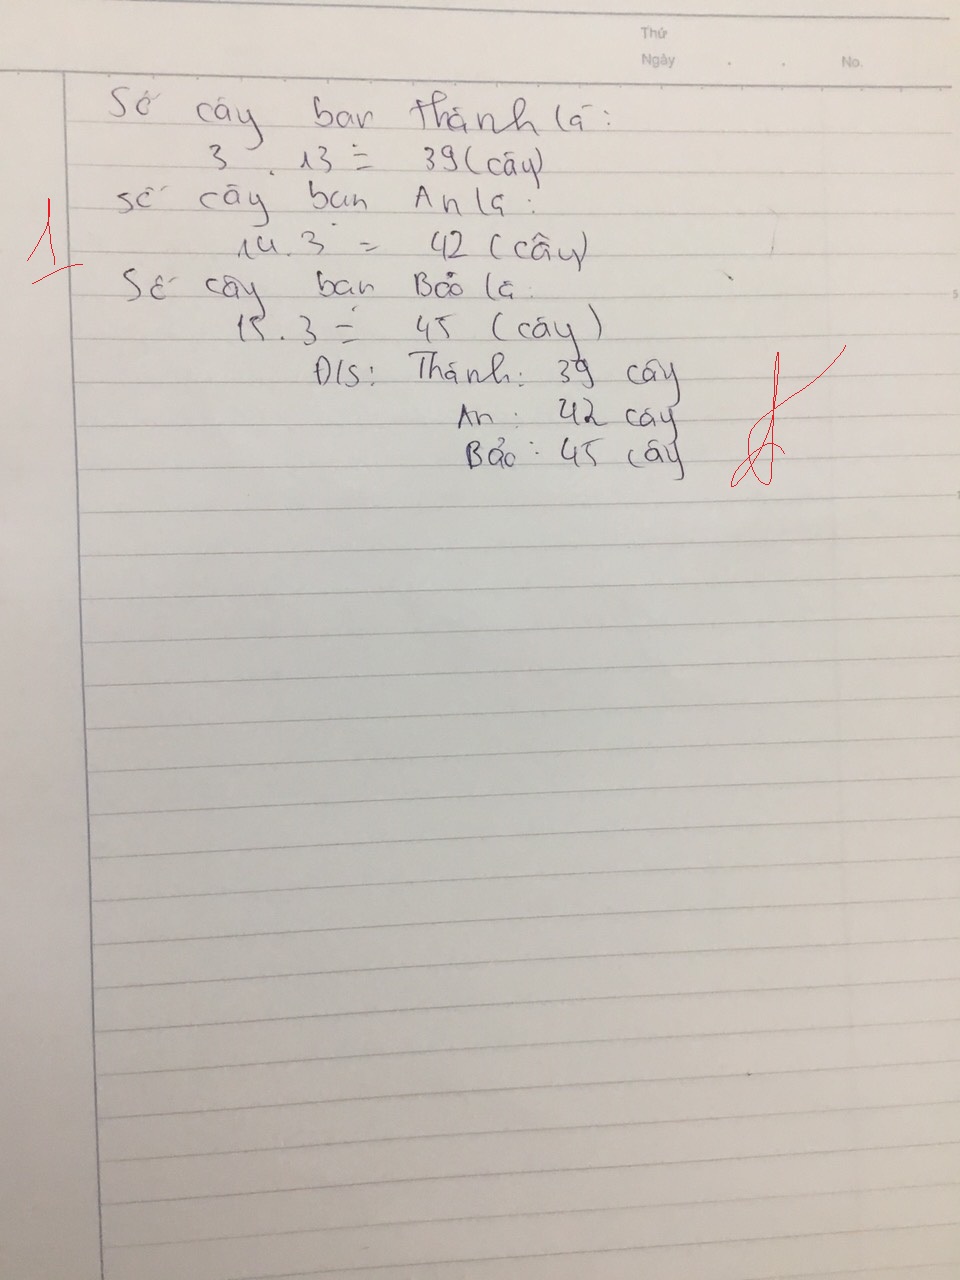 Thứ
Ngày . . No.
Số cây bạn Thành là:
3 . 13 = 39 (cây)
số cây bạn An là:
14 . 3 = 42 (cây)
Số cây bạn Bảo là:
15 . 3 = 45 (cây)
Đ/S: Thành: 39 cây
An: 42 cây
Bảo: 45 cây
1